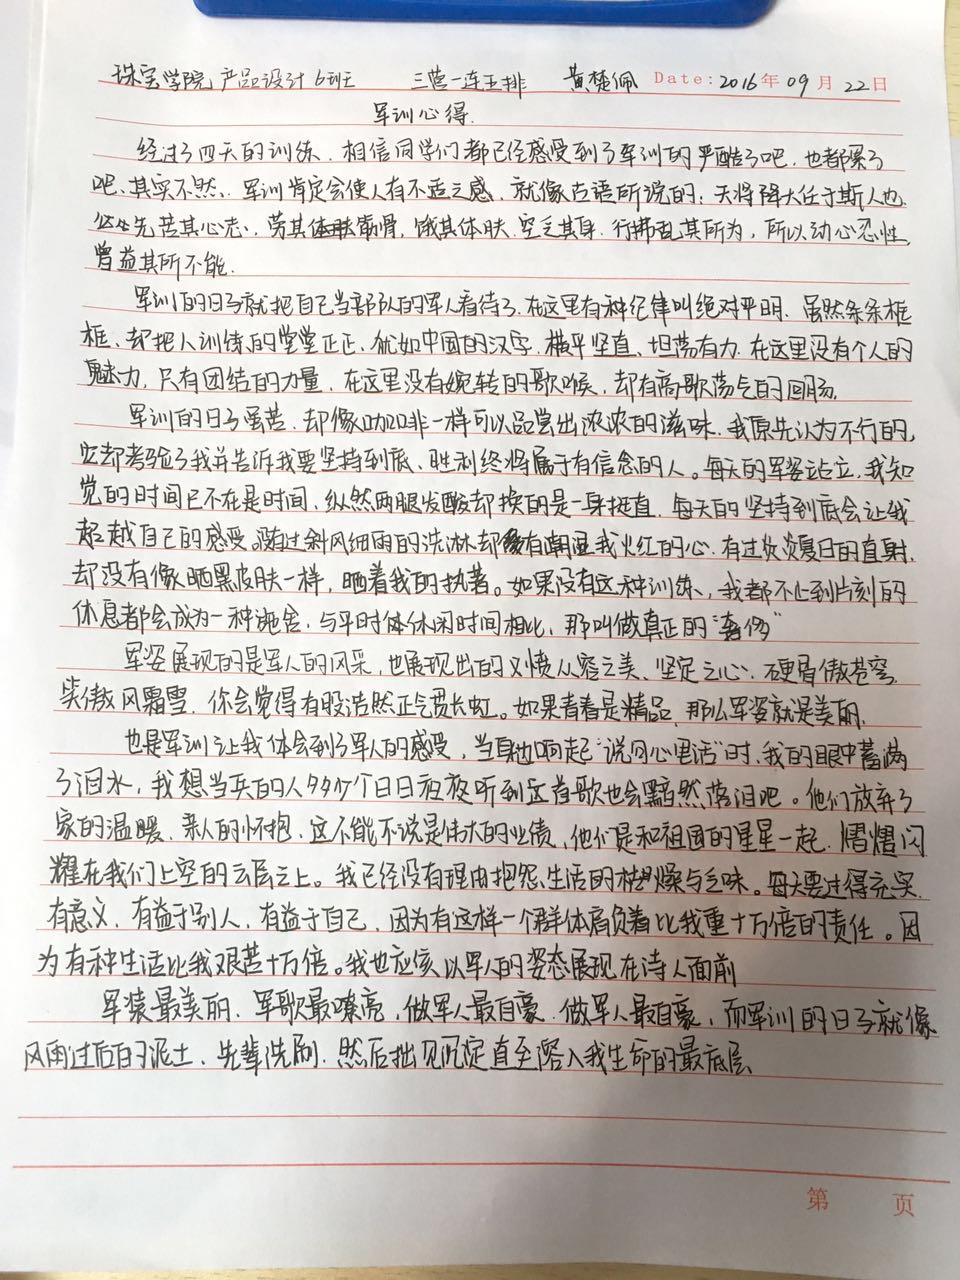 珠宝学院 产品设计6班 三营一连五排 黄楚佩 Date: 2016年09月22日
军训心得.
经过了四天的训练、相信同学们都已经感受到了军训的严酷了吧，也都累了
吧、其实不然、军训肯定会使人有不适之感、就像古语所说的：天将降大任于斯人也
必先苦其心志、劳其筋骨，饿其体肤.空乏其身.行拂乱其所为，所以动心忍性，
曾益其所不能.
军训的日子就把自己当部队的军人看待了.在这里有种纪律叫绝对严明、虽然条条框
框、却把人训练的堂堂正正、就如中国的汉字，横平坚直、坦荡有力.在这里没有个人的
魅力，只有团结的力量，在这里没有婉转的歌喉，却有高歌荡气的回肠，
军训的日子虽苦、却像咖啡一样可以品尝出浓浓的滋味.我原先认为不行的，
它却考验了我并告诉我要坚持到底、胜利终将属于有信念的人。每天的军姿站立，我知
觉的时间已不在是时间，纵然两腿发酸却换的是一身挺直.每天的坚持到底会让我
超越自己的感受。没有过斜风细雨的洗淋却没有潮湿我火红的心.有过炎炎夏日的直射，
却没有像晒黑皮肤一样，晒着我的执著。如果没有这种训练，我都不止到片刻的
休息都会成为一种施舍，与平时休闲时间相比，那叫做真正的“奢侈”
军姿展现的是军人的风采，也展现出的义愤从容之美、坚定之心、硬骨傲苍穹、
笑傲风霜雪.你会觉得有股浩然正气贯长虹。如果青春是精品，那么军姿就是美丽.
也是军训让我体会到了军人的感受，当身边响起“说句心里话”时、我的眼中蓄满
了泪水，我想当兵的人多少个日日夜夜听到这首歌也会黯然落泪吧。他们放弃了
家的温暖、亲人的怀抱，这不能不说是伟大的业绩，他们是和祖国的星星一起，熠熠闪
耀在我们上空的云层之上。我已经没有理由抱怨生活的枯燥与乏味。每天要过得充实
有意义，有益于别人，有益于自己，因为有这样一个群体肩负着比我重十万倍的责任。因
为有种生活比我艰苦十万倍。我也应该以军人的姿态展现在诗人面前
军装最美丽、军歌最嘹亮，做军人最自豪.做军人最自豪，而军训的日子就像
风雨过后的泥土、先辈洗刷，然后拙见沉淀直至溶入我生命的最底层、
第 页